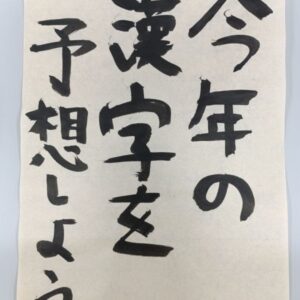 今年の
漢字を
予想しよう